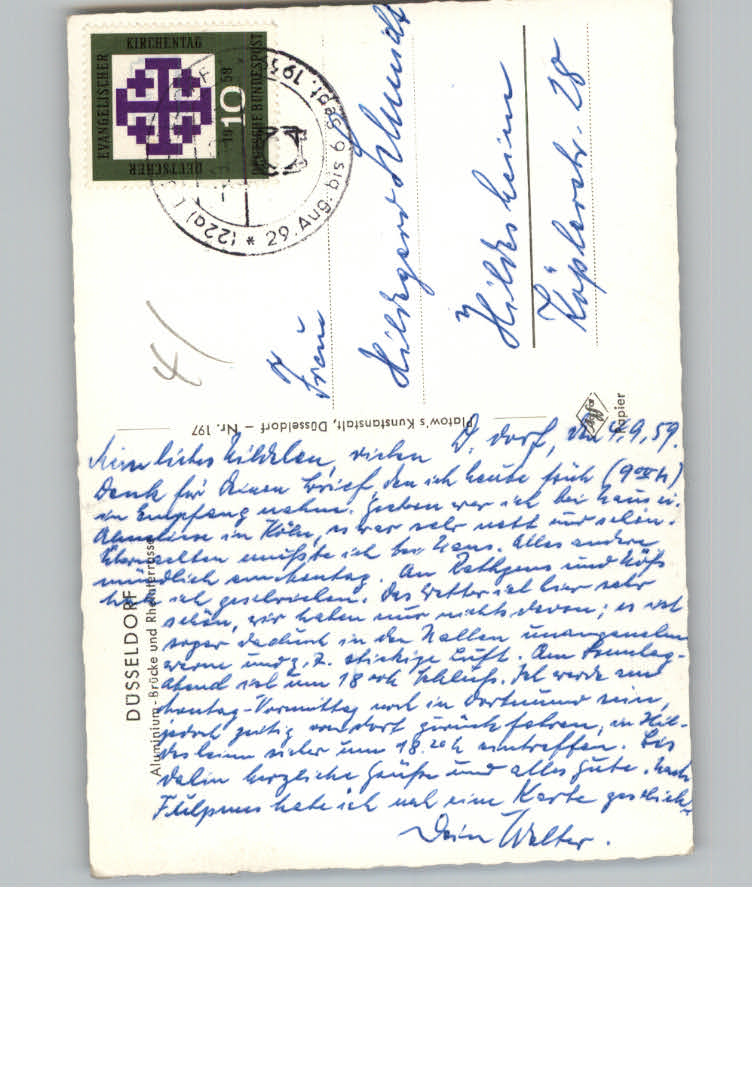 DEUTSCHER EVANGELISCHER KIRCHENTAG
1958
10
DEUTSCHE BUNDESPOST
(22a)
* 29. Aug. bis 6. Sept. 195
4/
Frau
Hildegard Schmidt
in Hildesheim
Käplerstr. 28
Platow's Kunstanstalt, Düsseldorf – Nr. 197
Agfa
Papier
DÜSSELDORF
Aluminium-Brücke und Rheinterrasse
D.dorf, den 4.9.59.
Mein liebes Hildelein, vielen
Dank für Deinen Brief, den ich heute früh (9 00 h)
in Empfang nahm. Gestern war ich bei Hans u.
in Köln, es war sehr nett und schön.
mußte ich bei Hans. Alles andere
mündlich am Montag. An Rathgens und
habe ich geschrieben. Das Wetter ist hier sehr
schön, wir haben nur nichts davon; es ist
sogar dadurch in den Hallen unangenehm
warm und z. T. stickige Luft. Am Sonntag-
abend ist um 18 00 h Schluß. Ich werde am
Montag-Vormittag noch in Dortmund sein,
jedoch zeitig von dort zurückfahren, in Hil-
desheim sicher um 18.20 h eintreffen. Bis
dahin herzliche Grüße und alles Gute. Nach
Fulpmes habe ich noch eine Karte geschickt.
Dein Walter.